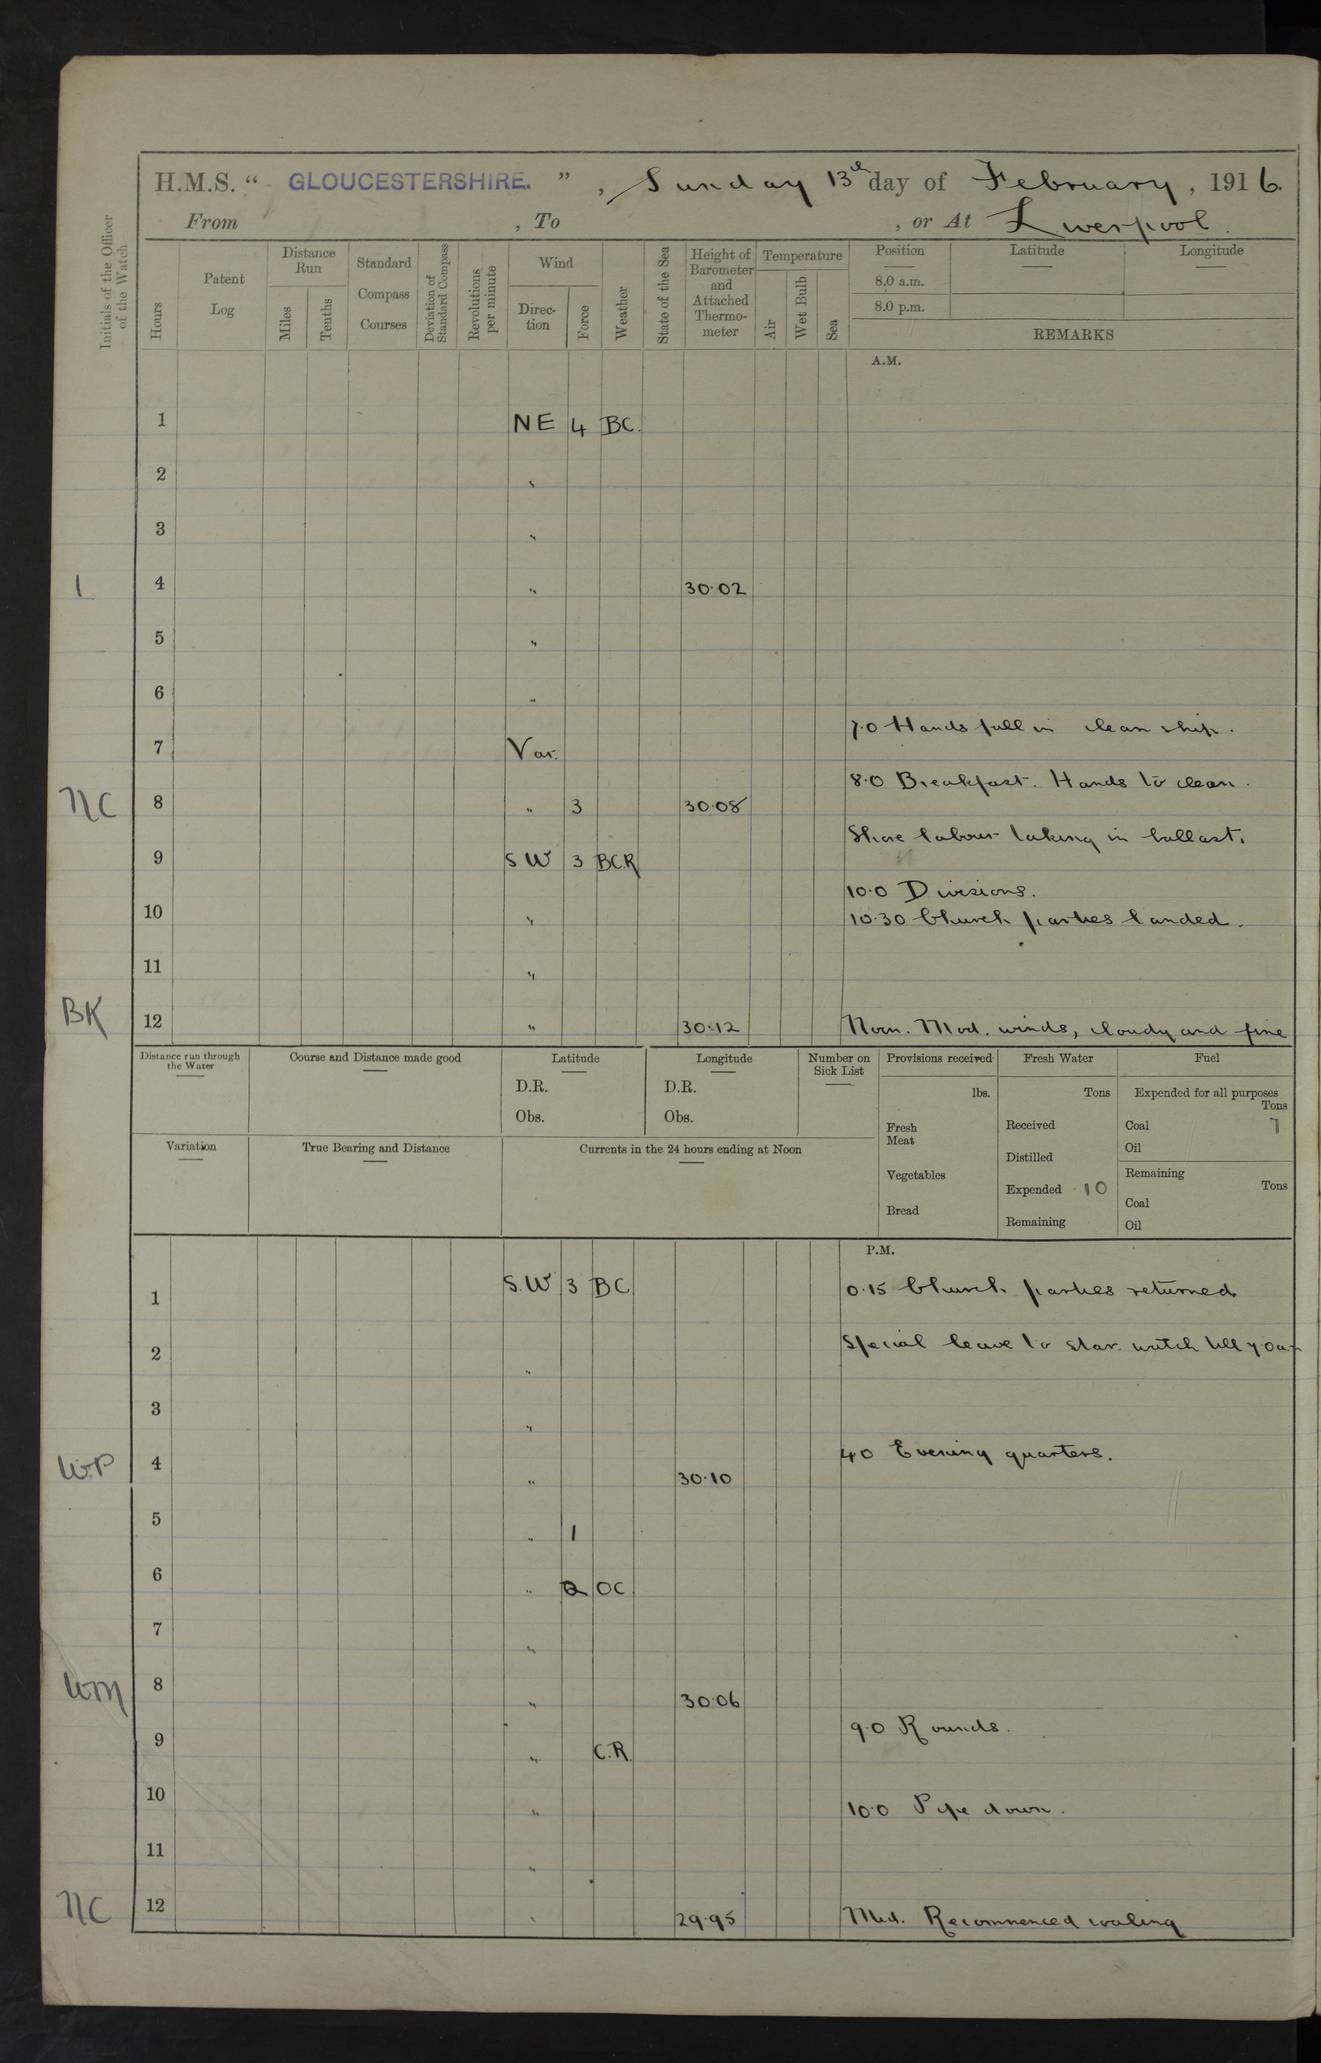 H.M.S. “ GLOUCESTERSHIRE. ” , Sunday 13th day of February , 1916.
From , To , or At Liverpool.
Initials of the Officer of the Watch
Hours
Patent Log
Distance Run
Miles
Tenths
Standard Compass Courses
Deviation of Standard Compass
Revolutions per minute
Wind
Direc-tion
Force
Weather
State of the Sea
Height of Barometer and Attached Thermo-meter
Temperature
Air
Wet Bulb
Sea
Position
8.0 a.m.
8.0 p.m.
Latitude
Longitude
REMARKS
A.M.
1 NE 4 BC.
2 "
3 "
1 4 " 30.02
5 "
6 "
7.0 Hands fall in clean ship.
7 Var.
8.0 Breakfast. Hands to clean.
NC 8 " 3 30.08
Shore labour taking in ballast.
9 SW 3 BCR
10.0 Divisions.
10 " 10.30 Church parties landed.
11 "
BK 12 " 30.12 Noon. Mod. winds, cloudy and fine
Distance run through the Water
Course and Distance made good
Latitude
D.R.
Obs.
Longitude
D.R.
Obs.
Number on Sick List
Provisions received
lbs.
Fresh Meat
Vegetables
Bread
Fresh Water
Tons
Received
Distilled
Expended 10
Remaining
Fuel
Expended for all purposes
Tons
Coal 7
Oil
Remaining
Tons
Coal
Oil
Variation
True Bearing and Distance
Currents in the 24 hours ending at Noon
P.M.
1 S.W 3 BC 0.15 Church parties returned
2 " Special leave to star. watch till 7.0am
3 "
4.0 Evening quarters.
WP 4 " 30.10
5 " 1
6 " 2 OC
7 "
WM 8 " 30.06
9.0 Rounds.
9 " C.R.
10 " 10.0 Pipe down.
11 "
NC 12 " 29.95 Mid. Recommenced coaling